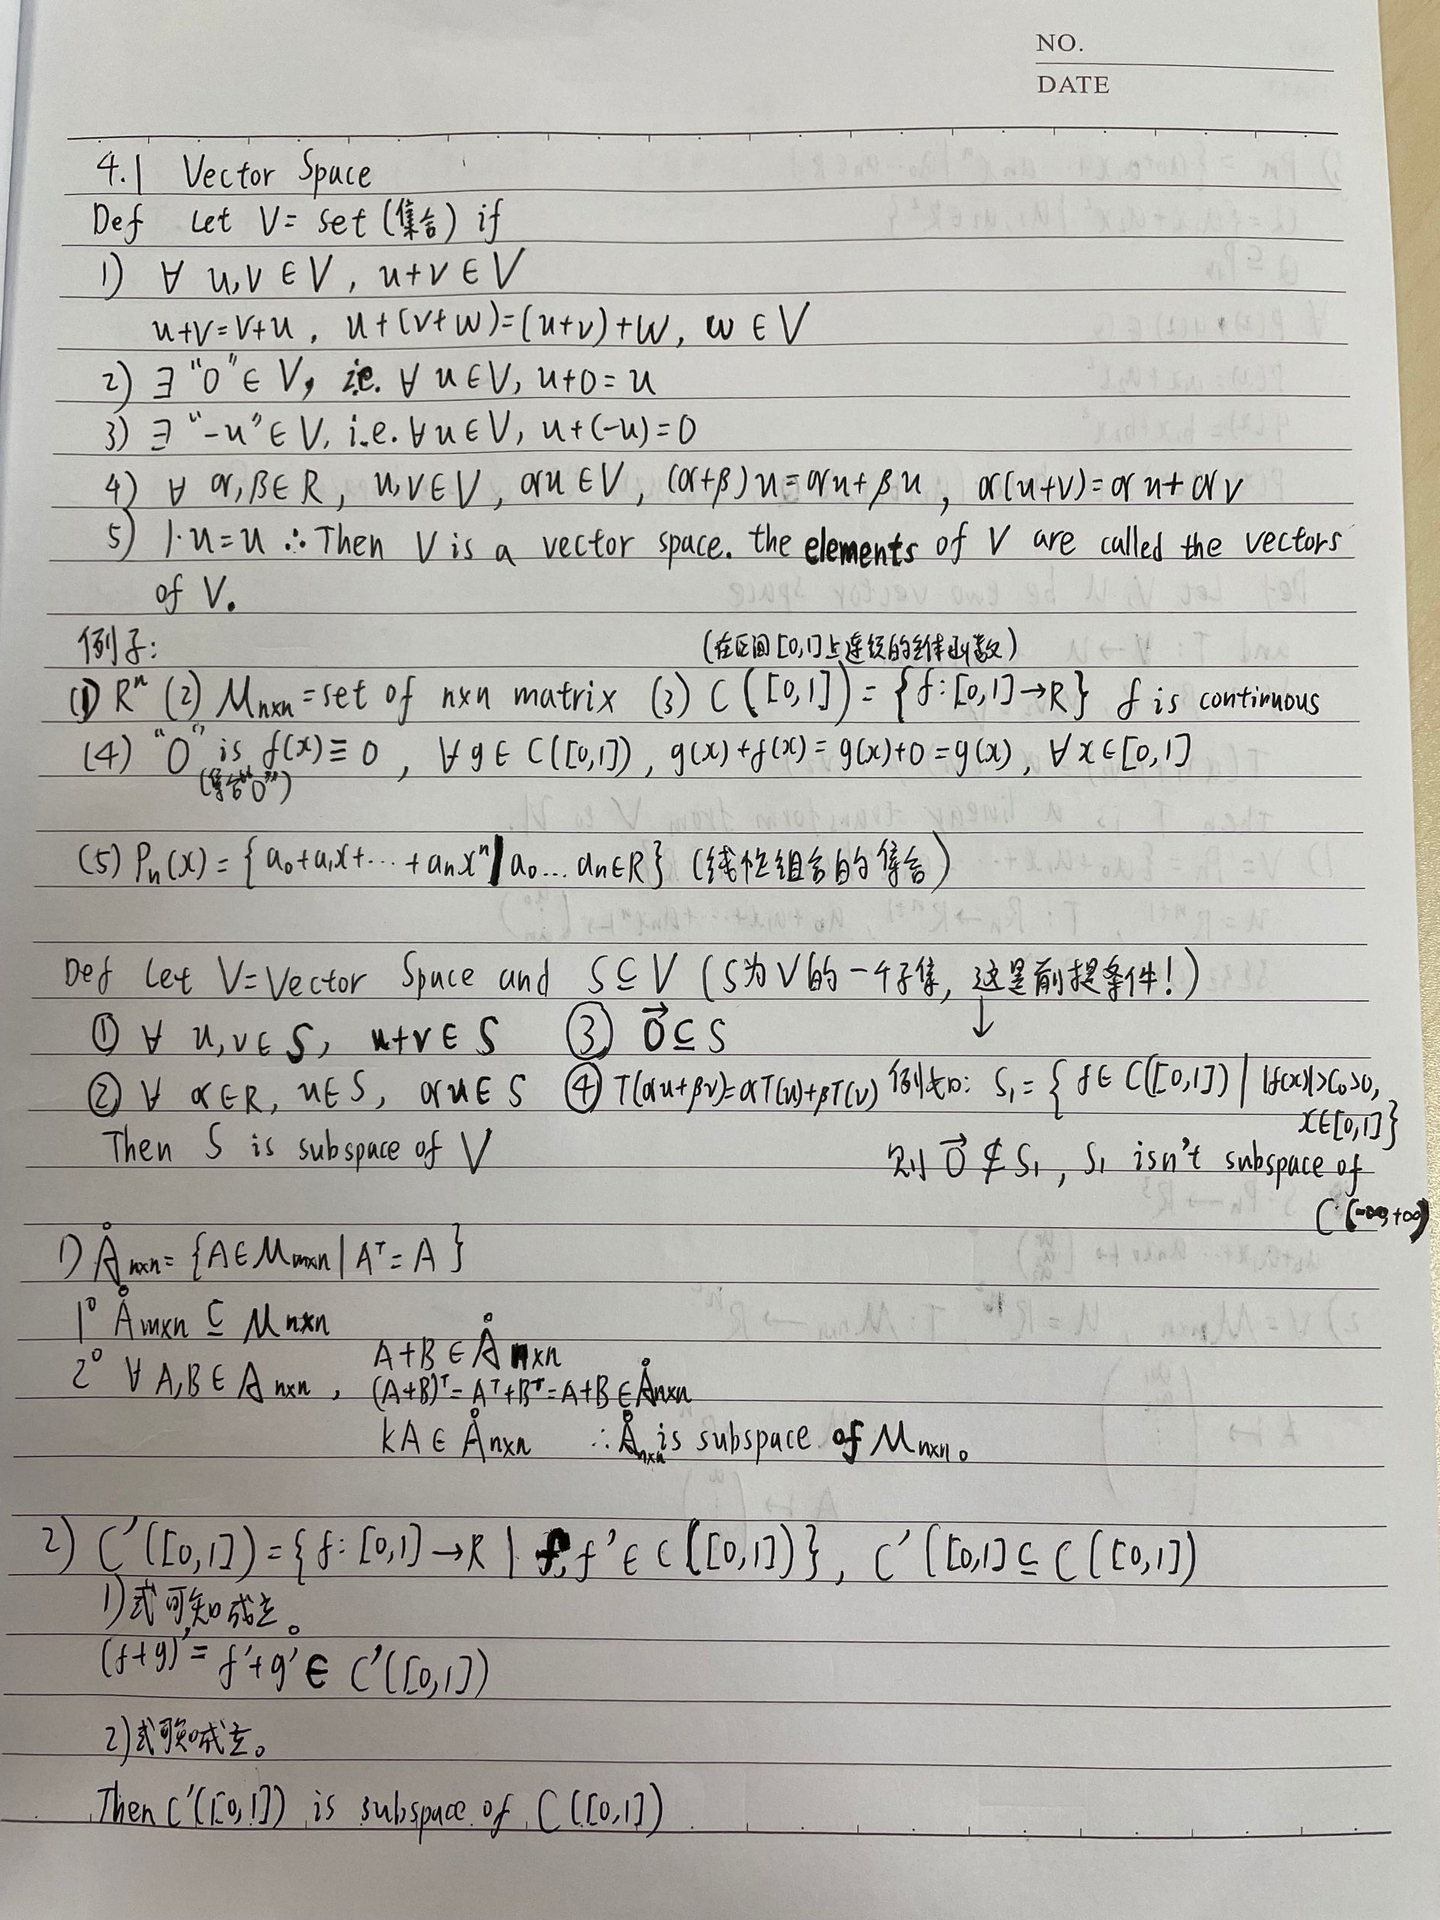 NO.
DATE
4.1 Vector Space
Def Let V = set (集合) if
1) ∀ u,v ∈ V, u+v ∈ V
u+v=v+u, u+(v+w)=(u+v)+w, w ∈ V
2) ∃ "0" ∈ V, i.e. ∀ u ∈ V, u+0=u
3) ∃ "-u" ∈ V, i.e. ∀ u ∈ V, u+(-u)=0
4) ∀ α,β ∈ R, u,v ∈ V, αu ∈ V, (α+β)u=αu+βu, α(u+v)=αu+αv
5) 1·u=u ∴ Then V is a vector space. the elements of V are called the vectors
of V.
例子:
(在区间[0,1]上连续的全体函数)
(1) Rⁿ (2) Mₙₓₙ = set of n×n matrix (3) C([0,1]) = {f:[0,1]→R} f is continuous
(4) "0" is f(x)≡0, ∀ g ∈ C([0,1]), g(x)+f(x)=g(x)+0=g(x), ∀ x∈[0,1]
(集合"0")
(5) Pₙ(x) = {a₀+a₁x+···+aₙxⁿ | a₀...aₙ∈R} (线性组合的集合)
Def Let V=Vector Space and S⊆V (S为V的一个子集, 这是前提条件!)
① ∀ u,v ∈ S, u+v ∈ S ③ 0⃗ ⊆ S ↓
② ∀ α∈R, u∈S, αu ∈ S ④ T(αu+βv)=αT(u)+βT(v) 例如: S₁ = {f ∈ C([0,1]) | |f(x)|>C₀>0,
x∈[0,1]}
Then S is subspace of V 则 0⃗ ∉ S₁, S₁ isn't subspace of
C(-∞,+∞)
1) Åₙₓₙ = {A∈Mₘₓₙ | Aᵀ = A}
1° Åₘₓₙ ⊆ Mₙₓₙ
A+B ∈ Åₙₓₙ
2° ∀ A,B ∈ Aₙₓₙ, (A+B)ᵀ=Aᵀ+Bᵀ=A+B ∈ Åₙₓₙ
kA ∈ Åₙₓₙ ∴ Åₙₓₙ is subspace of Mₙₓₙ。
2) C'([0,1]) = {f:[0,1]→R | f,f' ∈ C([0,1])}, C'([0,1] ⊆ C([0,1])
1)式可知成立。
(f+g)' = f'+g' ∈ C'([0,1])
2)式可知成立。
Then C'([0,1]) is subspace of C([0,1])